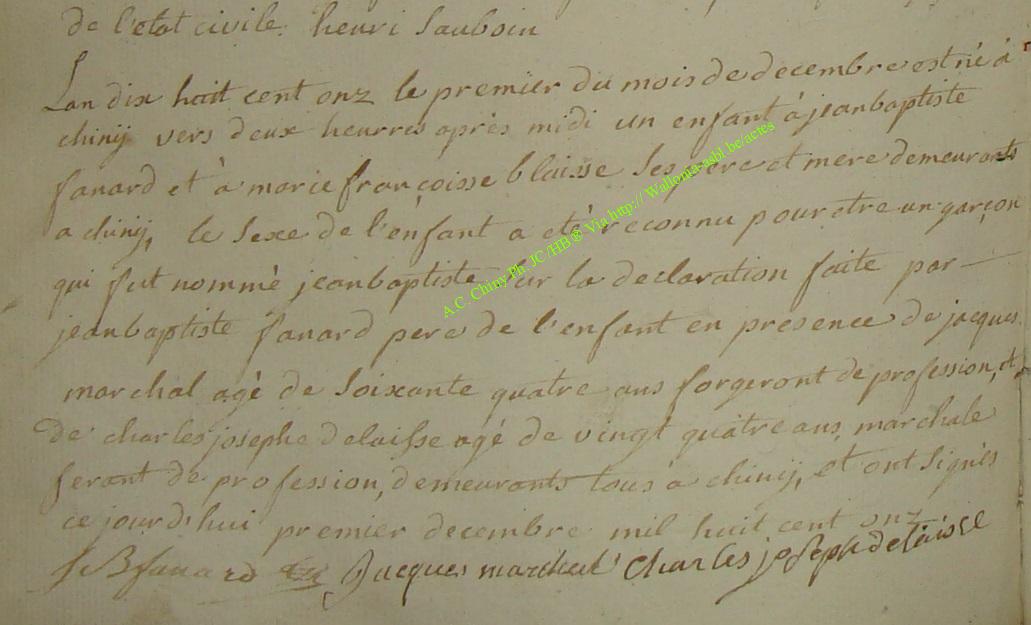 de l'etat civile. henri Sauboin
Lan dix huit cent onz le premier du mois de decembre est né à
chinij vers deux heurres après midi un enfant à jeanbaptiste
fanard et à marie françoisse blaisse ses pere et mere demeurants
a chinij, le sexe de l'enfant a eté reconnu pour etre un garçon
qui fut nommé jeanbaptiste sur la declaration faite par
jeanbaptiste fanard pere de l'enfant en presence de jacques
marchal agé de soixante quatre ans forgeront de profession, et
de charles josephe delaisse agé de vingt quatre ans, marchale
ferant de profession, demeurants tous a chinij, et ont signés
ce jourd'hui premier decembre mil huit cent onz
JBfanard Jacques marchal Charles joseph delaisse
A.C. Chiny Ph. JC /HB® Via http:// Wallonia-asbl.be/actes